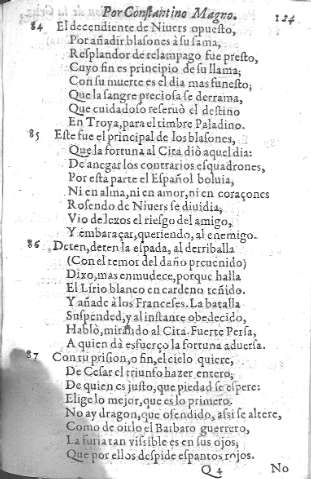 Por Constantino Magno. 124
84 El decendiente de Niuers opuesto,
Por añadir blasones à su fama,
Resplandor de relampago fue presto,
Cuyo fin es principio de su llama;
Con su muerte es el dia mas funesto;
Que la sangre preciosa se derrama,
Que cuidadoso reseruò el destino
En Troya, para el timbre Paladino.
85 Este fue el principal de los blasones,
Que la fortuna al Cita diò aquel dia:
De anegar los contrarios esquadrones,
Por esta parte el Español boluia,
Ni en alma, ni en amor, ni en coraçones
Rosendo de Niuers se diuidia,
Vio de lexos el riesgo del amigo,
Y embaraçar, queriendo, al enemigo.
86 Deten, deten la espada, al derriballa
(Con el temor del daño preuenido)
Dixo, mas enmudece, porque halla
El Lirio blanco en cardeno teñido.
Y añade à los Franceses. La batalla
Suspended, y al instante obedecido,
Hablò, mirando al Cita. Fuerte Persa,
A quien dà esfuerço la fortuna aduersa.
87 Con tu prision, o fin, el cielo quiere,
De Cesar el triunfo hazer entero;
De quien es justo, que piedad se espere:
Elige lo mejor, que es lo primero.
No ay dragon, que ofendido, assi se altere,
Como de oirlo el Barbaro guerrero,
La furia tan visible es en sus ojos,
Que por ellos despide espantos rojos.
Q 4 No